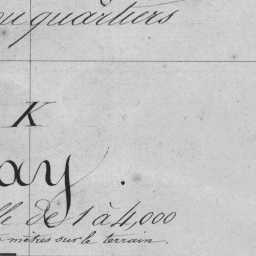 ou quartiers
K
ay.
lle de 1 à 4,000
mètres sur le terrain.